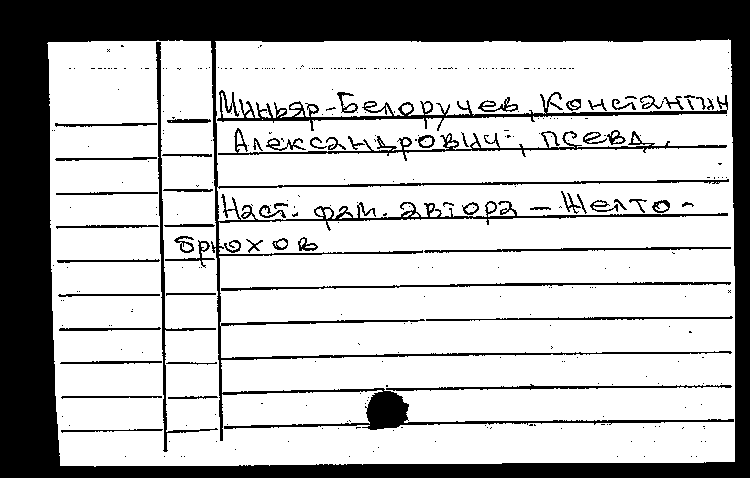 Миньяр-Белоручев, Константин
Александрович, псевд.
Наст. фам. автора — Желто-
брюхов